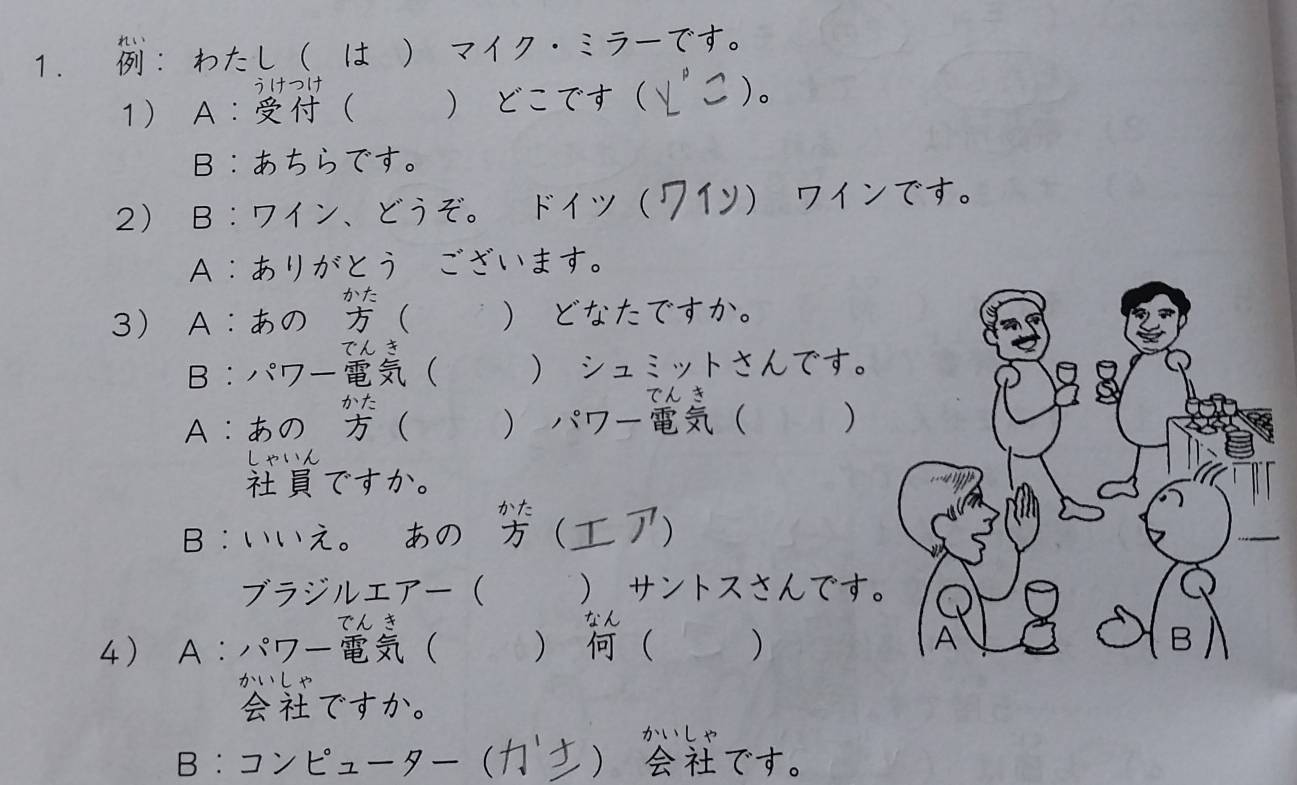 1. 例： わたし（ は ） マイク・ミラーです。
1） A：受付（ ） どこです（どこ）。
B：あちらです。
2） B：ワイン、どうぞ。 ドイツ（ワイン） ワインです。
A：ありがとう ございます。
3） A：あの 方（ ） どなたですか。
B：パワー電気（ ） シュミットさんです。
A：あの 方（ ） パワー電気（ ）
社員ですか。
B：いいえ。 あの 方（エア）
ブラジルエアー（ ） サントスさんです。
4） A：パワー電気（ ） 何（ ）
会社ですか。
B：コンピューター（ ） 会社です。
A
B